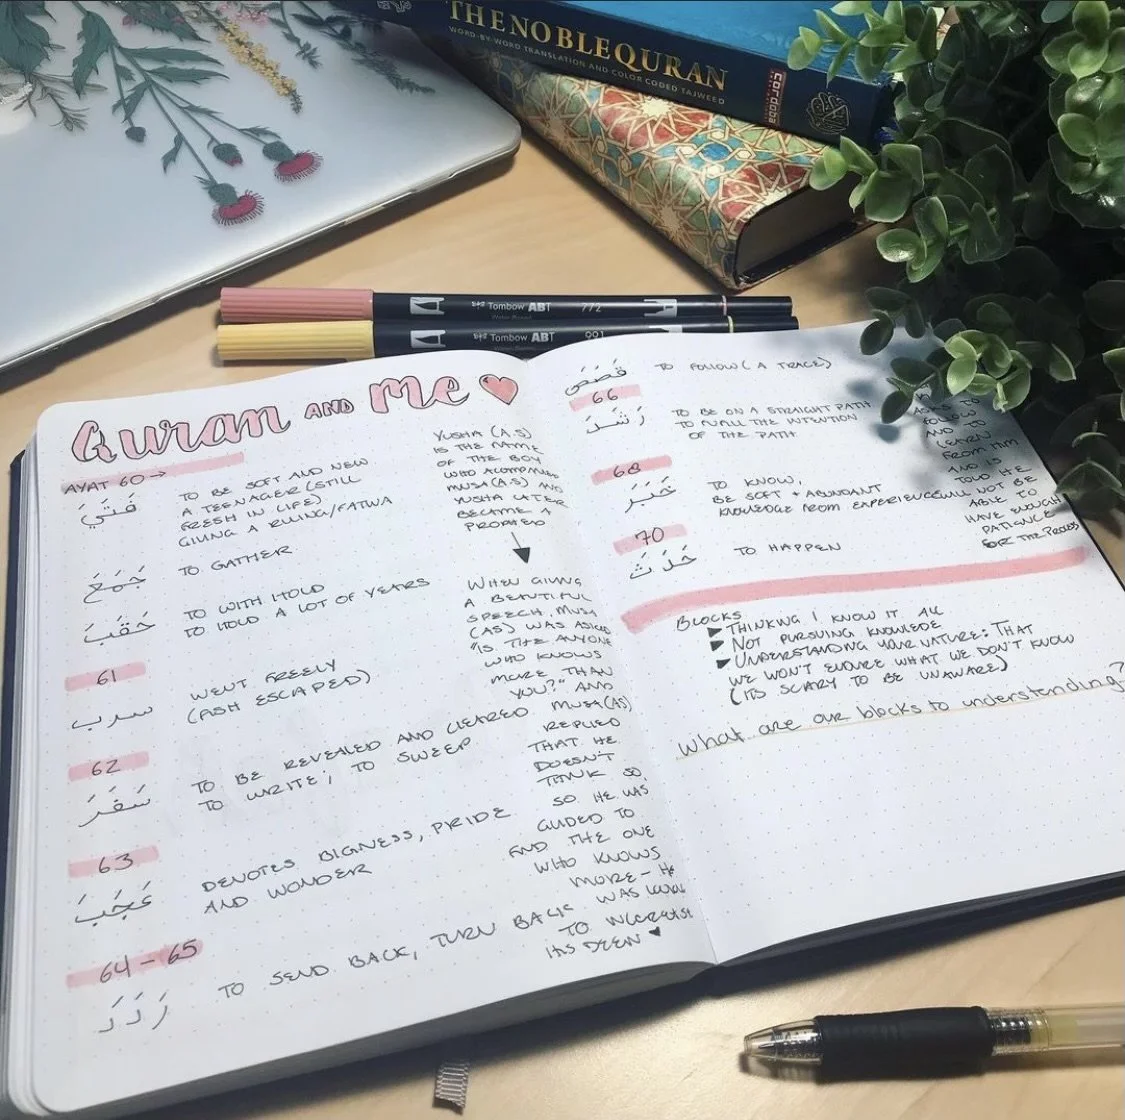 THE NOBLE QURAN
WORD-BY-WORD TRANSLATION AND COLOR CODED TAJWEED
cordoba
Tombow ABT 772
Tombow ABT 991
Quran AND Me
AYAT 60→
فَتَيَ
TO BE SOFT AND NEW
A TEENAGER (STILL
FRESH IN LIFE)
GIVING A RULING/FATWA
جَمَعَ
TO GATHER
حَقَبَ
TO WITHHOLD
TO HOLD A LOT OF YEARS
61
سرب
WENT FREELY
(FISH ESCAPED)
62
سَفَرَ
TO BE REVEALED AND CLEARED
TO WRITE; TO SWEEP
63
عَجَبَ
DENOTES BIGNESS, PRIDE
AND WONDER
64-65
رَدَدَ
TO SEND BACK, TURN BACK
YUSHA (A.S)
IS THE NAME
OF THE BOY
WHO ACOMPANIED
MUSA(A.S) AND
YUSHA LATER
BECAME A
PROPHED
WHEN GIVING
A BEAUTIFUL
SPEECH, MUSA
(AS) WAS ASKED
"IS THE ANYONE
WHO KNOWS
MORE THAN
YOU?" AND
MUSA(AS)
REPLIED
THAT HE
DOESN'T
THINK SO,
SO HE WAS
GUIDED TO
FIND THE ONE
WHO KNOWS
MORE - HE
WAS
TO INCREASE
HIS DEEN
قَصَصَ
TO FOLLOW (A TRACE)
66
رَشَدَ
TO BE ON A STRAIGHT PATH
TO FULFILL THE INTENTION
OF THE PATH
68
خَبَرَ
TO KNOW,
BE SOFT + ABUNDANT
KNOWLEDGE FROM EXPERIENCE
70
حَدَثَ
TO HAPPEN
ASKS TO
FOLLOW
AND TO
LEARN
FROM HIM
AND IS
TOLD HE
WILL NOT BE
ABLE TO
HAVE ENOUGH
PATIENCE
FOR THE PROCESS
BLOCKS
THINKING I KNOW IT ALL
NOT PURSUING KNOWLEDGE
UNDERSTANDING YOUR NATURE: THAT
WE WON'T ENDURE WHAT WE DON'T KNOW
(ITS SCARY TO BE UNAWARE)
what are our blocks to understanding?